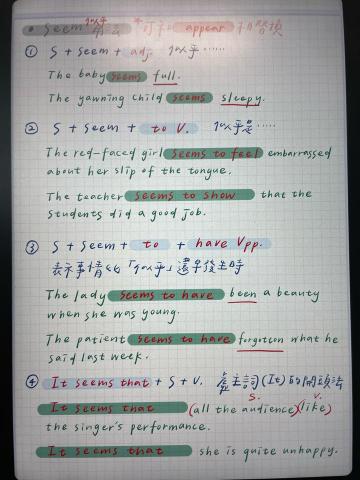 • seem 似乎 用法 *可和 appear 相替換
① S + seem + adj. 似乎……
The baby seems full.
The yawning child seems sleepy.
② S + seem + to V. 似乎是……
The red-faced girl seems to feel embarrassed
about her slip of the tongue.
The teacher seems to show that the
students did a good job.
③ S + seem + to + have Vpp.
表示事情比「似乎」還早發生時
The lady seems to have been a beauty
when she was young.
The patient seems to have forgotten what he
said last week.
④ It seems that + S + V. 虛主詞(It)的開頭法
S. V.
It seems that (all the audience)(like)
the singer's performance.
It seems that she is quite unhappy.